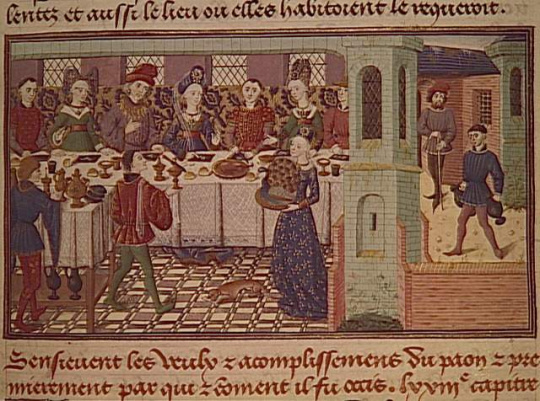 lentez et aussi le lieu ou elles habitoient le requeroit.
Sensieuent les veulz z acomplissemens du paon z pre
mierement par qui z coment il fu occis. lxxiiiᵉ capitre